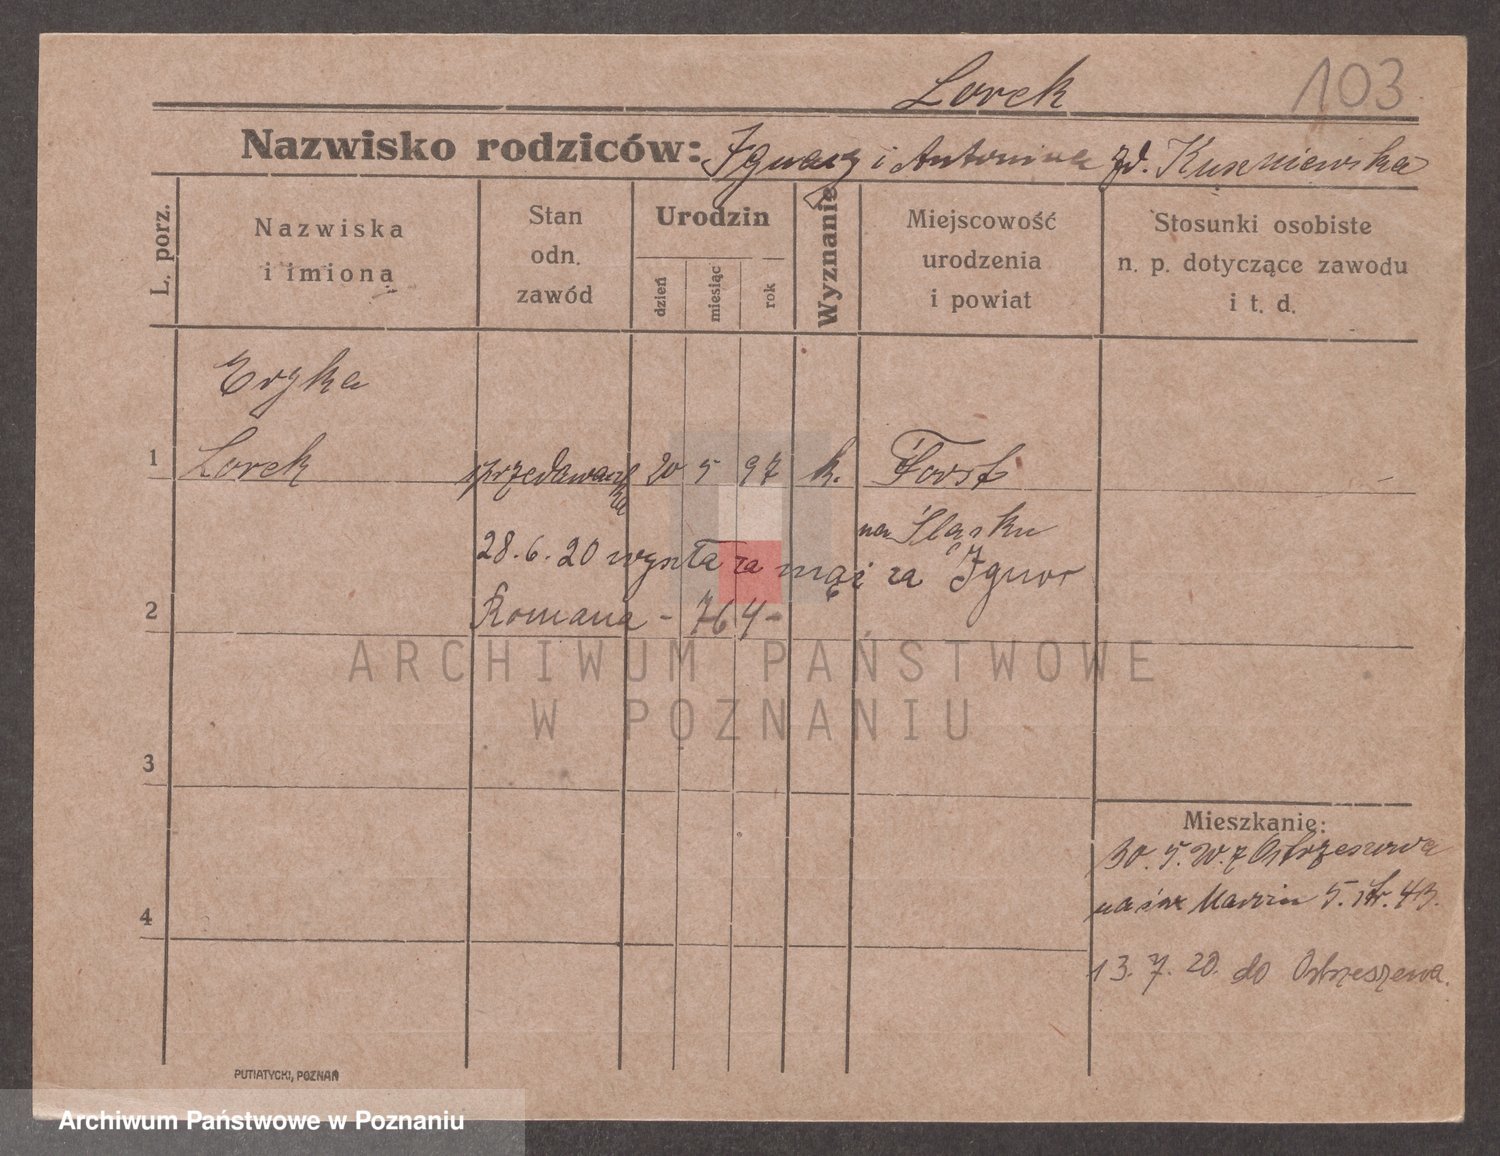 Lorek
103
Nazwisko rodziców: Ignacy i Antonina zd. Kuszniewska
L. porz.
Nazwiska
i imiona
Stan
odn.
zawód
Urodzin
dzień
miesiąc
rok
Wyznanie
Miejscowość
urodzenia
i powiat
Stosunki osobiste
n. p. dotyczące zawodu
i t. d.
Eryka
1 Lorek sprzedawaczka 20 5 97 k. Forst
na Śląsku
28.6.20 wyszła za mąż za
2 Romana - 764-
ARCHIWUM PAŃSTWOWE
W POZNANIU
3
Mieszkanie:
30.5.20. z Ostrzeszowa
Marcin 5. 43.
4
13.7.20. do Ostrzeszowa.
PUTIATYCKI, POZNAŃ
Archiwum Państwowe w Poznaniu